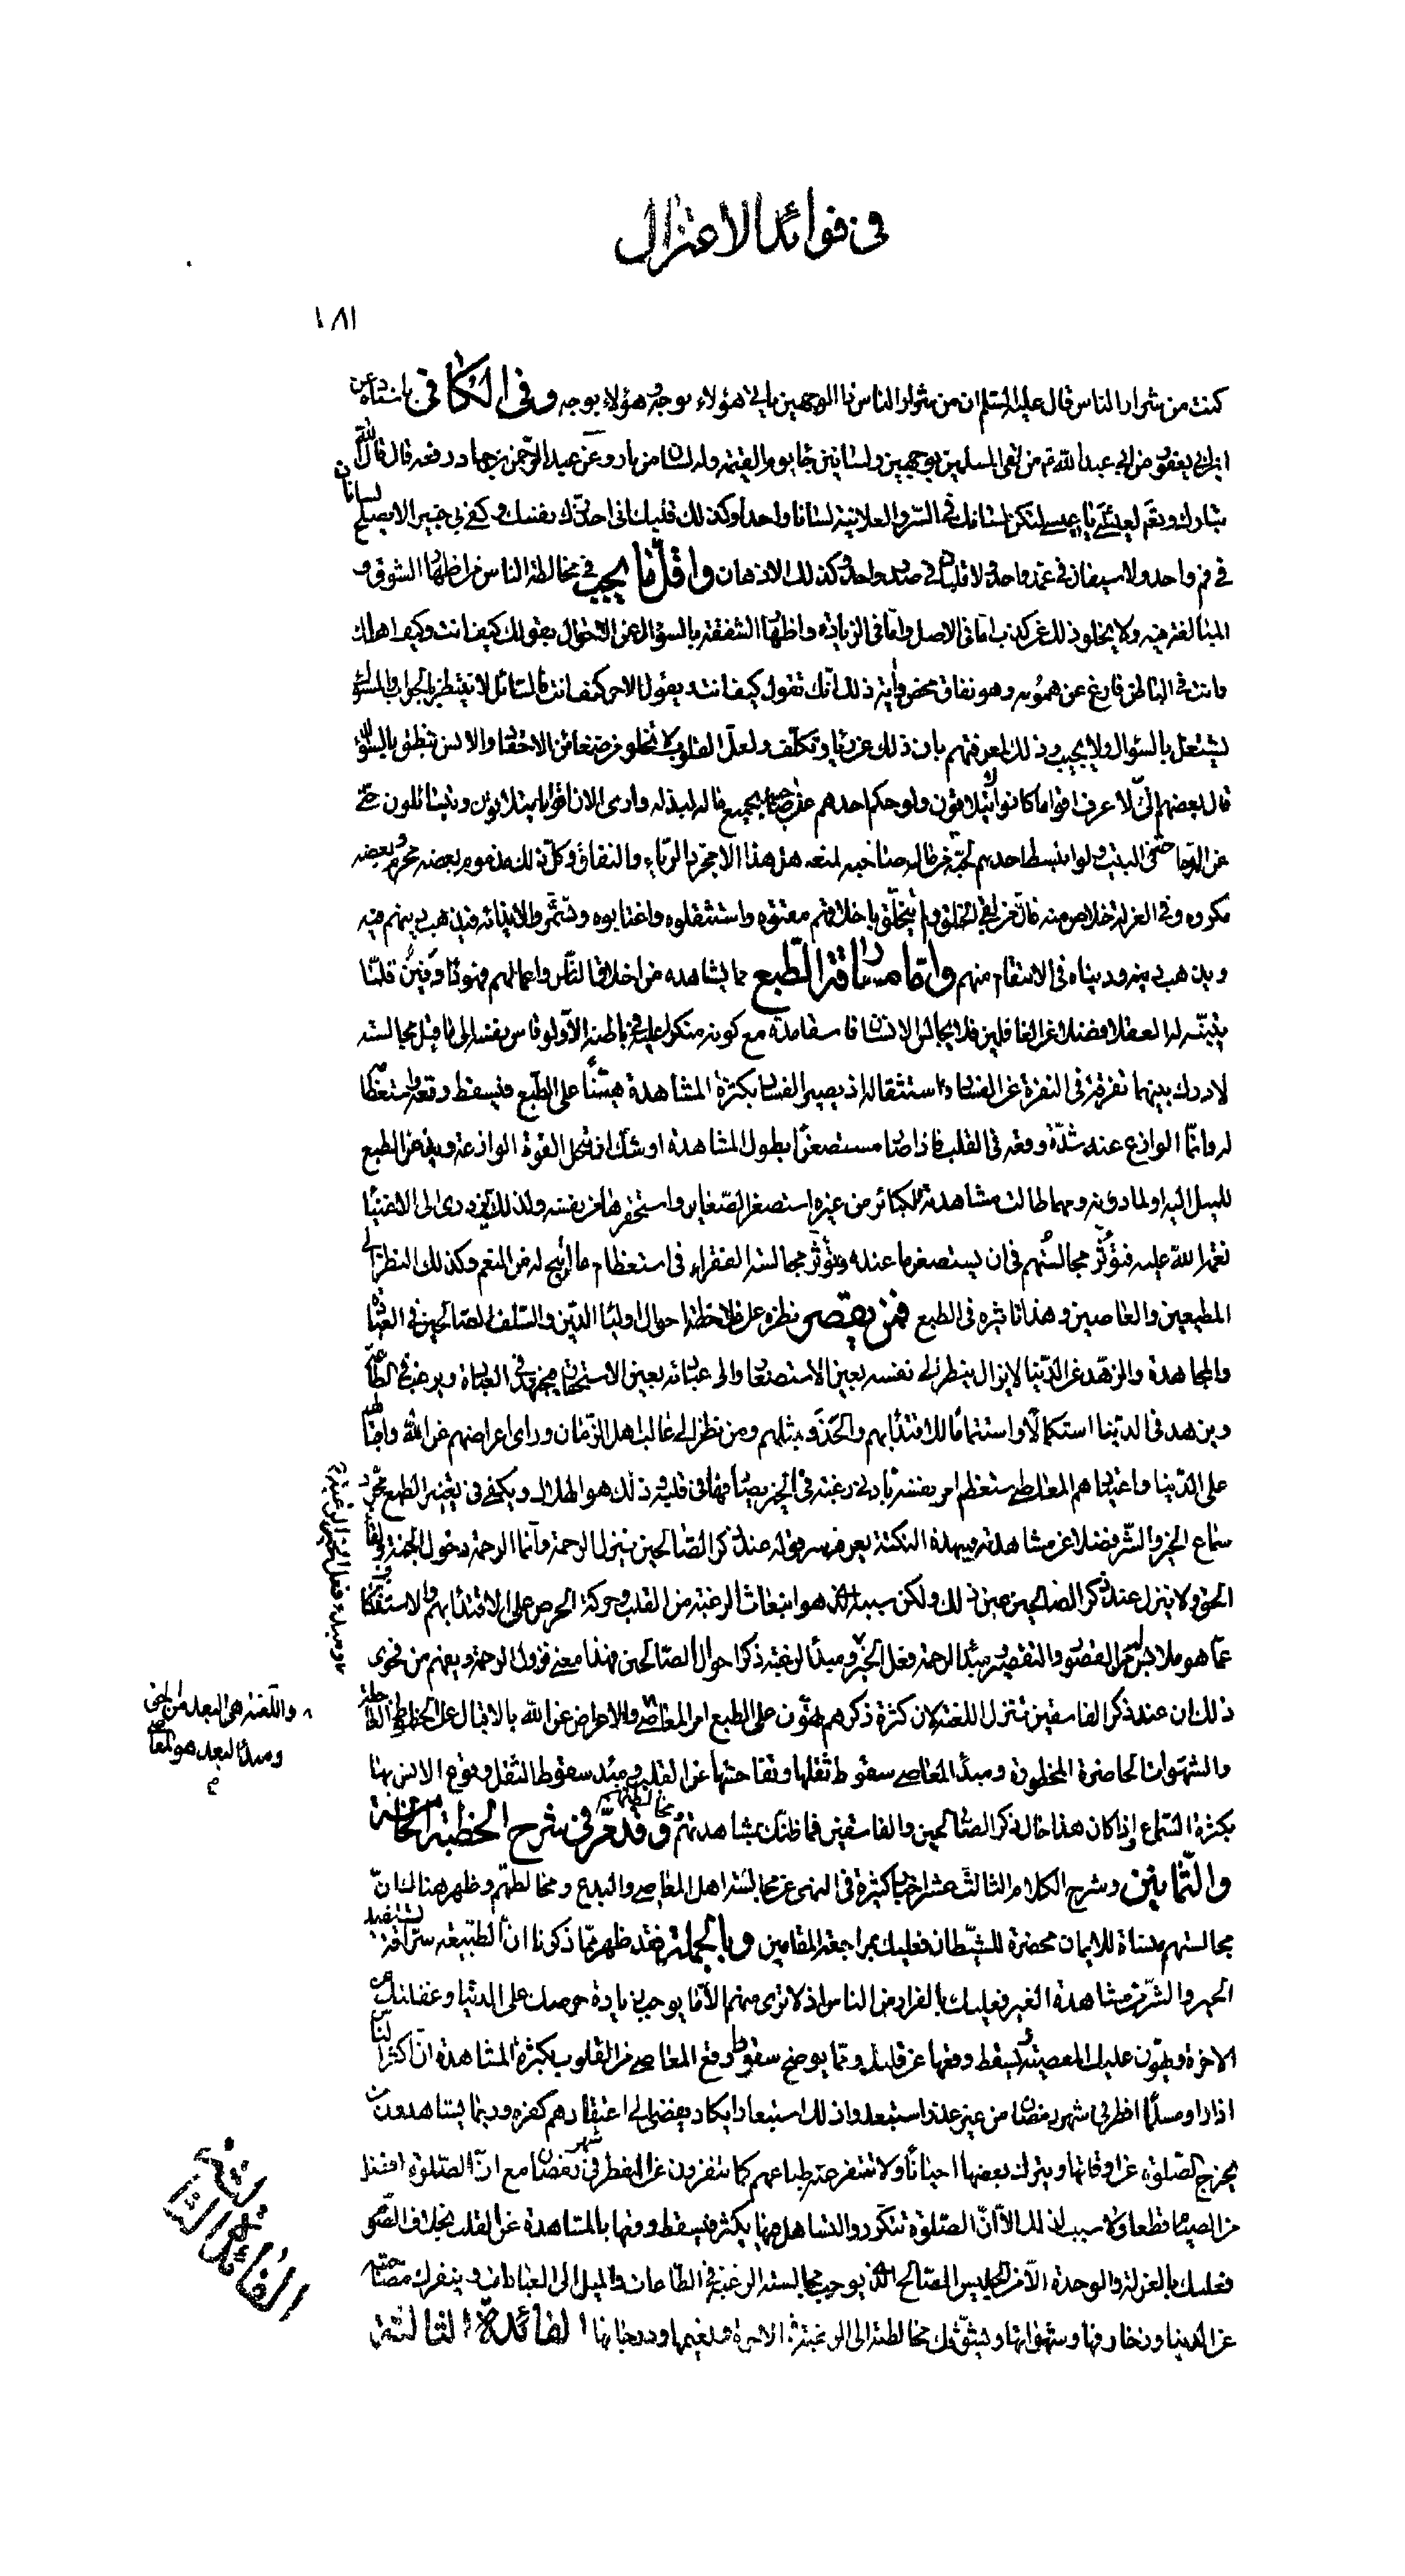 فى فوائد الاعتزال
١٨١
كنت من شرار الناس قال عليه السلم ان من شرار الناس ذا الوجهين ياتى هؤلاء بوجه و هؤلاء بوجه وفى الكافى باسناده عن
ابن ابى يعفور عن ابى عبد الله ع من لقى المسلمين بوجهين ولسانين جاء يوم القيمة وله لسانان من نار وعن عبد الرحمن بن حماد رفعه قال قال الله
تبارك وتعم لعيسى يا عيسى ليكن لسانك فى السر والعلانية لسانا واحدا وكذلك قلبك انى احذرك نفسك وكفى بى خبيرا لا يصلح لسانان
فى فم واحد ولا سيفان فى غمد واحد ولا قلبان فى صدر واحد وكذلك الاذهان واقل ما يجب فى مخالطة الناس اظهار الشوق و
المبالغة فيه ولا يخلو ذلك عن كذب اما فى الاصل واما فى الزيادة واظهار الشفقة بالسؤال عن الاحوال بقولك كيف انت وكيف اهلك
وانت فى الباطن فارغ عن همومه وهو نفاق محض واية ذلك انك تقول كيف انت ويقول الاخر كيف انت فالسائل لا ينتظر الجواب والمسئول
يشتغل بالسؤال ولا يجيب وذلك لمعرفتهم بان ذلك عن رياء وتكلف ولعل القلوب لا تخلو من ضغائن الاحقاد والالسن تنطق بالسؤال
قال بعضهم انى لا عرف اقواما كانوا لا يتلاقون ولو حكم احدهم على صاحبه بجميع ماله لبذله وارى الان اقواما يتلاقون ويتسائلون حتى
عن الدجاجة فى البيت ولو انبسط احدهم لحبة من مال صاحبه لمنعه هل هذا الا مجرد الرياء والنفاق وكل ذلك مذموم بعضه محرم وبعضه
مكروه وفى العزلة خلاص منه فان من لقى الخلق ولم يتخلق باخلاقهم مقتوه واستثقلوه واغتابوه وتشمروا لايذائه فيذهب دينهم فيه
ويذهب دينه ودنياه فى الانتقام منهم واما مسارقة الطبع مما يشاهده من اخلاق الناس واعمالهم فهو داء دفين قلما
يتنبه له العقلاء فضلا عن الغافلين فلا يجالس الانسان فاسقا مدة مع كونه منكرا عليه فى باطنه الا ولو قاس نفسه الى ما قبل مجالسته
لادرك بينهما تفرقة فى النفرة عن الفساد واستثقاله اذ يصير الفساد بكثرة المشاهدة هينا على الطبع فيسقط وقعه واستعظامه
له وانما الوازع عنه شدة وقعه فى القلب فاذا صار مستصغرا بطول المشاهدة اوشك ان تنحل القوة الوازعة ويذعن الطبع
للميل اليه او لما دونه ومهما طالت مشاهدته للكبائر من غيره استصغر الصغاير واستحقرها من نفسه ولذلك يزدرى الى الاغنياء
نعمة الله عليه فتؤثر مجالستهم فى ان يستصغر ما عنده وتؤثر مجالسة الفقراء فى استعظام ما اتيح له من النعم وكذلك النظر الى
المطيعين والعاصين وهذا تاثيره فى الطبع فمن يقصر نظره على ملاحظة احوال اولياء الدين والسلف الصالحين فى العبادة
والمجاهدة والزهد عن الدنيا لا يزال ينظر الى نفسه بعين الاستصغار والى عبادته بعين الاستحقار فيجتهد فى العبادة ويرغب فى الطاعة
ويزهد فى الدنيا استكمالا واستتماما للاقتداء بهم والحذو بمثلهم ومن نظر الى غالب اهل الزمان وراى اعراضهم عن الله واقبالهم
على الدنيا واعتيادهم المعاصى استعظم امر نفسه بادنى رغبة فى الخير يصادفها فى قلبه وذلك هو الهلاك ويكفى فى تغيير الطبع مجرد
سماع الخير والشر فضلا عن مشاهدته وبهذه النكتة يعرف سر قوله عند ذكر الصالحين تنزل الرحمة وانما الرحمة دخول الجنة ولقاء
الحق ولا ينزل عند ذكر الصالحين عين ذلك ولكن سببه الذى هو انبعاث الرغبة من القلب وحركة الحرص على الاقتداء بهم والاستنكاف
عما هو ملابس له من القصور والتقصير ومبدأ الرحمة فعل الخير ومبدأ الرغبة ذكر احوال الصالحين فهذا معنى نزول الرحمة ويفهم من فحوى
ذلك ان عند ذكر الفاسقين تتنزل اللعنة لان كثرة ذكرهم تهون على الطبع امر المعاصى والاعراض عن الله بالاقبال على الحظوظ العاجلة
والشهوات الحاضرة المحظورة ومبدأ المعاصى سقوط ثقلها وتفاحشها عن القلب ومبدء سقوط الثقل وقوع الانس بها
بكثرة السماع واذا كان هذا حال ذكر الصالحين والفاسقين فما ظنك بمشاهدتهم و مخالطتهم وقد مر فى شرح الخطبة الخامسة
والثمانين وشرح الكلام الثالث عشر اخبار كثيرة فى النهى عن مجالسة اهل المعاصى والبدع ومخالطتهم وظهر هنالك ان
مجالستهم منساة للايمان محضرة للشيطان فعليك بمراجعة المقامين وبالجملة فقد ظهر مما ذكرنا ان الطبيعة سراقة تستفيد
الخير والشر من مشاهدة الغير فعليك بالفرار من الناس اذ لا ترى منهم الا ما يوجب زيادة حرصك على الدنيا وغفلتك عن
الاخرة ويهون عليك المعصية ويسقط وقعها عن قلبك ومما يوضح سقوط وقع المعاصى من القلوب بكثرة المشاهدة ان اكثر الناس
اذا راوا مسلما افطر فى شهر رمضان من غير عذر استبعدوا ذلك استبعادا يكاد يفضى الى اعتقادهم كفره وربما يشاهدون من
يخرج الصلوة عن اوقاتها ويترك بعضها احيانا ولا تتنفر عنه طباعهم كما يتنفرون عن المفطر فى شهر رمضان مع ان الصلوة افضل
من الصيام قطعا ولا سبب لذلك الا ان الصلوة تتكرر والتساهل فيها يكثر فيسقط وقعها بالمشاهدة عن القلب بخلاف الصوم
فعليك بالعزلة والوحدة الا من الجليس الصالح الذى يوجب مجالسته الرغبة فى الطاعات والميل الى العبادات وينفرك مصاحبته
عن الدنيا وزخارفها وشهواتها ويشوقك مخالطته الى الرغبة فى الاخرة ونعيمها ودرجاتها الفائدة الثالثة
واللعنة هى البعد من الحق
ومبدأ البعد هو المعاصى
الفائدة الثالثة